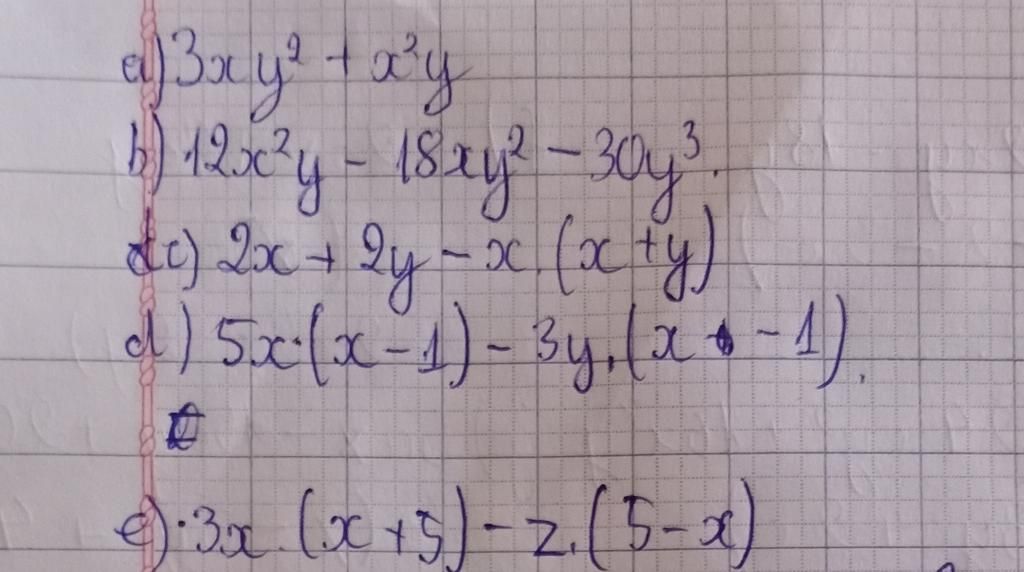 a) 3xy² + x²y
b) 12x²y - 18xy² - 30y³.
c) 2x + 2y - x.(x+y)
d) 5x.(x-1) - 3y.(x - 1).
e) 3x.(x+5) - z.(5-x)